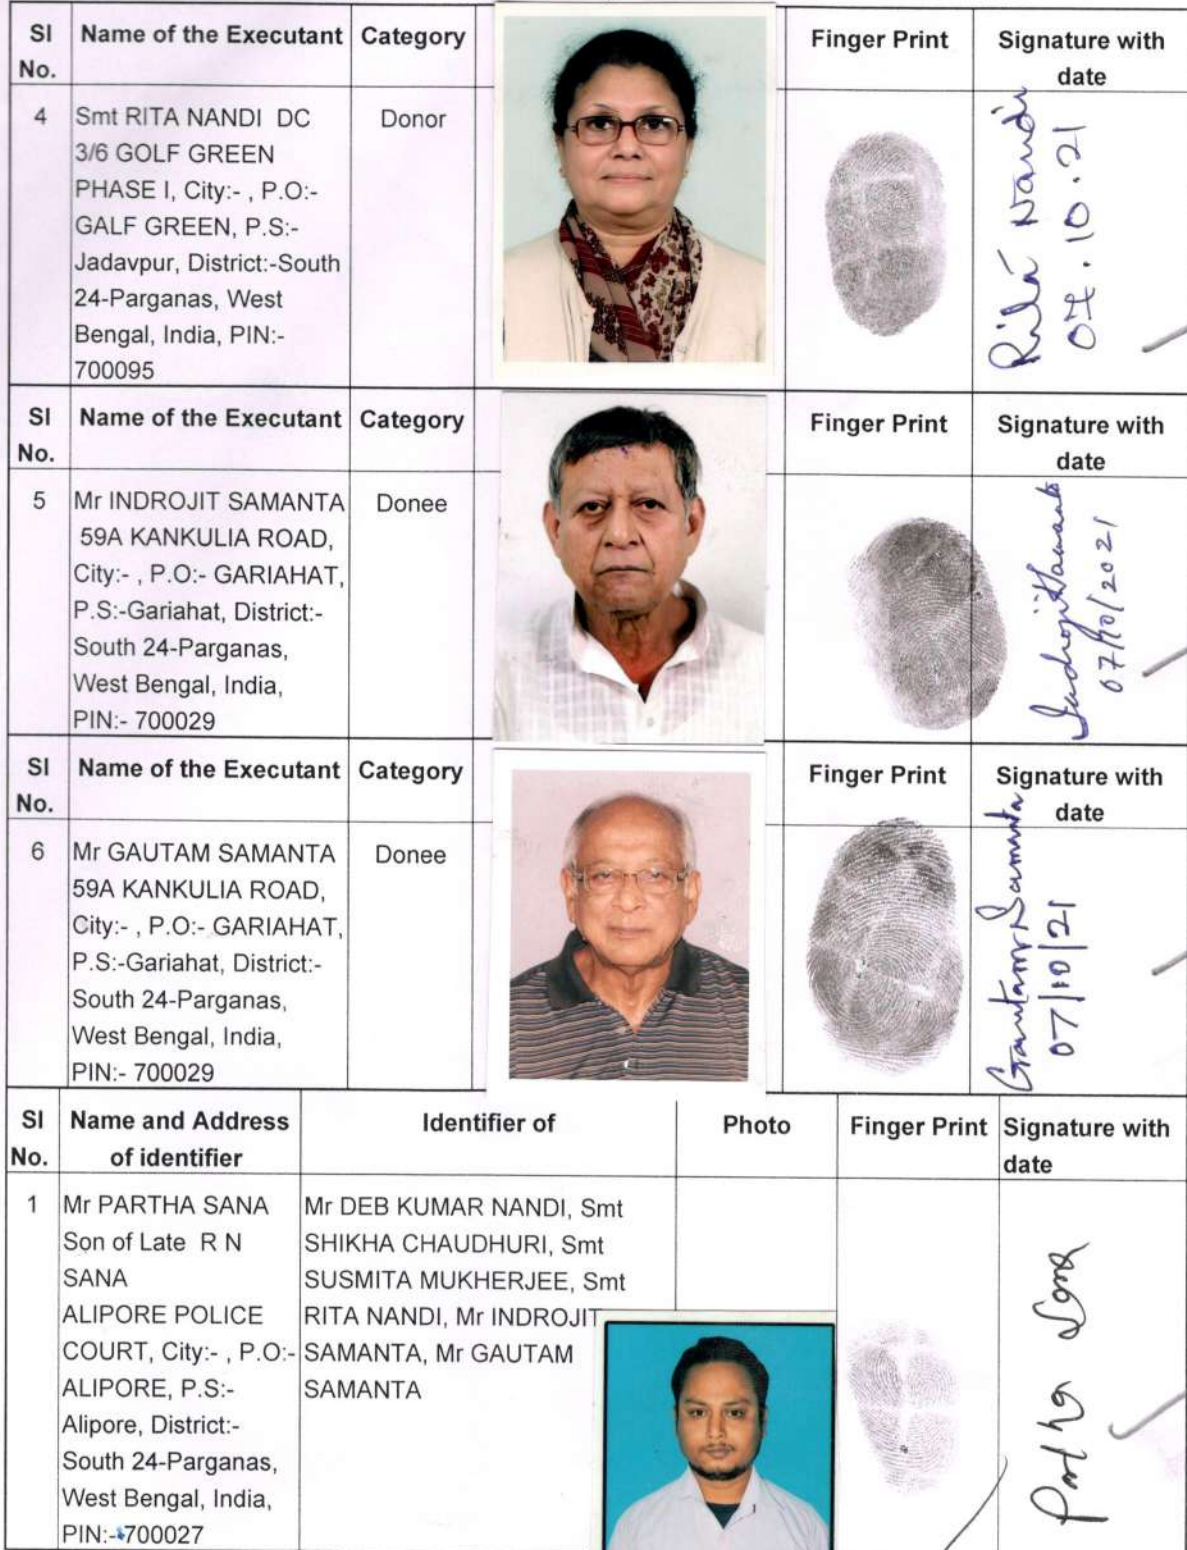 Sl No. Name of the Executant Category Finger Print Signature with date
4 Smt RITA NANDI DC Donor
3/6 GOLF GREEN
PHASE I, City:- , P.O:-
GALF GREEN, P.S:-
Jadavpur, District:-South
24-Parganas, West
Bengal, India, PIN:-
700095
Rita Nandi
07.10.21
Sl No. Name of the Executant Category Finger Print Signature with date
5 Mr INDROJIT SAMANTA Donee
59A KANKULIA ROAD,
City:- , P.O:- GARIAHAT,
P.S:-Gariahat, District:-
South 24-Parganas,
West Bengal, India,
PIN:- 700029
Indrojit Samanta
07/10/2021
Sl No. Name of the Executant Category Finger Print Signature with date
6 Mr GAUTAM SAMANTA Donee
59A KANKULIA ROAD,
City:- , P.O:- GARIAHAT,
P.S:-Gariahat, District:-
South 24-Parganas,
West Bengal, India,
PIN:- 700029
Gautam Samanta
07/10/21
Sl No. Name and Address of identifier Identifier of Photo Finger Print Signature with date
1 Mr PARTHA SANA
Son of Late R N
SANA
ALIPORE POLICE
COURT, City:- , P.O:-
ALIPORE, P.S:-
Alipore, District:-
South 24-Parganas,
West Bengal, India,
PIN:- 700027
Mr DEB KUMAR NANDI, Smt
SHIKHA CHAUDHURI, Smt
SUSMITA MUKHERJEE, Smt
RITA NANDI, Mr INDROJIT
SAMANTA, Mr GAUTAM
SAMANTA
Partha Sana